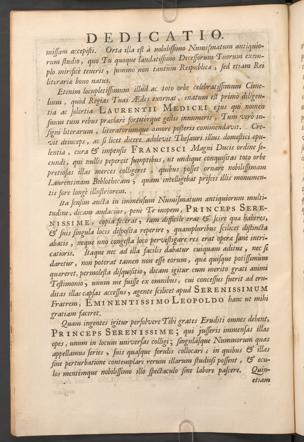 DEDICATIO.
missam accepisti. Orta illa est à nobilissimo Numismatum antiquio-
rum studio, quo Tu quoque laudatissimo Decessorum Tuorum exem-
plo mirificè teneris, summo non tantum Reipublicæ, sed etiam Rei
literariæ bono natus.
Etenim locupletissimum illud ac toto orbe celebratissimum Cime-
lium, quod Regias Tuas Ædes exornat, enatum est primò diligen-
tia ac solertia LAURENTII MEDICEI
summi tum rebus præclarè fortiterque gestis innumeris, Tum verò in-
signi literarum, literatorumque amore posteris commendavit. Cre-
vit deinceps, ac si licet dicere, adolevit Thesauri illius domestici opu-
lentia, cura & impensis FRANCISCI Magni Ducis ordine se-
cundi, qui nullis pepercit sumptibus, ut undique conquisitas toto orbe
pretiosas illas merces colligeret, quibus posset ornare nobilissimam
Laurentinam Bibliothecam; quam intelligebat prisci illis monumen-
tis fore longè illustriorem.
Ita sensim aucta in immensum Numismatum antiquiorum multi-
tudine, dicam audacius, peni Te inopem, PRINCEPS SERE-
NISSIME, copia fecerat; tum assistere erat & scire qua haberes,
& suis singula locis disposita reperire, quamplurimis scilicet distincta
abacis, neque uno congesta loco pervestigare res erat opera sanè intri-
catioris. Itaque nec ad illa facilis dabatur cuiquam aditus, nec si
daretur, non poterat tamen non esse eorum, quæ quisque potissimùm
quæreret, permolesta disquisitio, dicam igitur cum meritò grati animi
Testimonio, unum me fuisse ex omnibus, cui concessus fuerit ad eru-
ditas illas capsas accessus, agente scilicet apud SERENISSIMUM
Fratrem, EMINENTISSIMO LEOPOLDO hanc ut mihi
gratiam faceret.
Quam ingentes igitur persolvere Tibi grates Eruditi omnes debent,
PRINCEPS SERENISSIME; qui jusseris immensas illas
opes, unum in locum universas colligi; singulasque Nummorum quas
appellamus series, suis quasque forulis collocari: in quibus & illas
sine perturbatione contemplari rerum illarum studiosi possent, & ocu-
los mentémque nobilissimo illo spectaculo sine labore pascere. Quin-
etiam